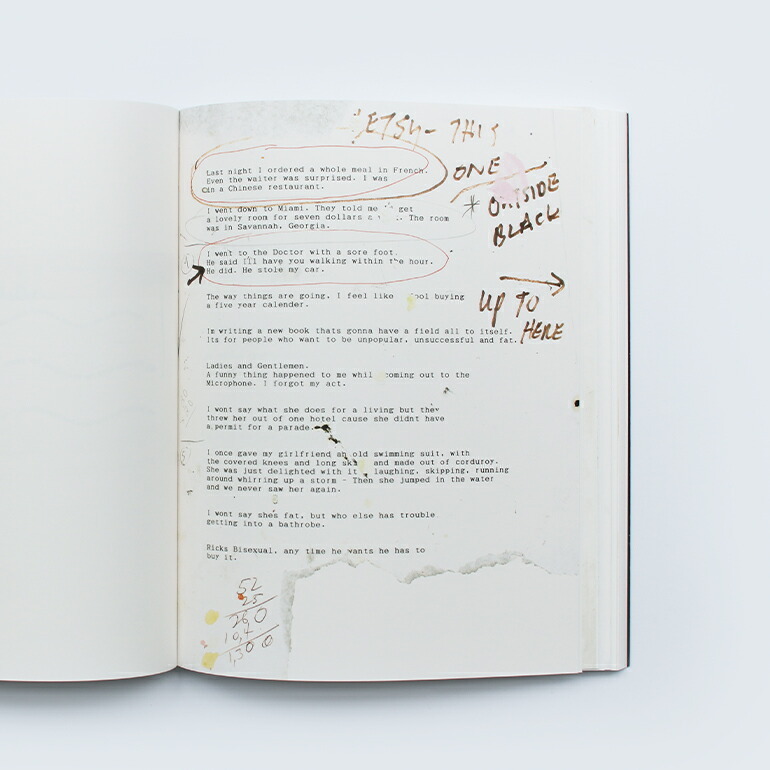 ETSY- THIS
ONE
* OUTSIDE
BLACK
Last night I ordered a whole meal in French.
Even the waiter was surprised. I was
in a Chinese restaurant.
I went down to Miami. They told me get
a lovely room for seven dollars a The room
was in Savannah, Georgia.
I went to the Doctor with a sore foot.
He said I'll have you walking within the hour.
He did. He stole my car.
UP TO
HERE
The way things are going, I feel like buying
a five year calender.
Im writing a new book thats gonna have a field all to itself.
Its for people who want to be unpopular, unsuccessful and fat.
Ladies and Gentlemen.
A funny thing happened to me coming out to the
Microphone. I forgot my act.
I wont say what she does for a living but they
threw her out of one hotel cause she didnt have
a permit for a parade.
I once gave my girlfriend an old swimming suit, with
the covered knees and long and made out of corduroy.
She was just delighted with it, laughing, skipping, running
around whirring up a storm - Then she jumped in the water
and we never saw her again.
I wont say shes fat, but who else has trouble
getting into a bathrobe.
Ricks Bisexual, any time he wants he has to
buy it.
52
25
260
1,300